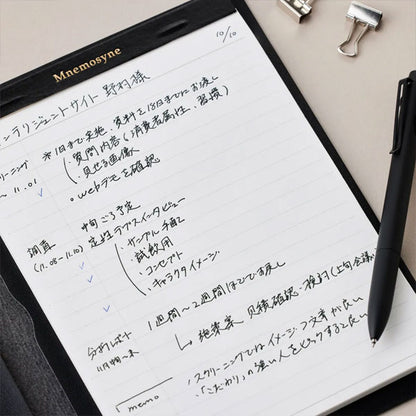 Mnemosyne
10/10
ンテリジェントサイト 野村様
リーニング
～11.01
※1日まで実施、資料を18日までにお戻し
質問内容(消費者属性、習慣)
見せる画像
webデモを確認
調査
(11.08-11.10)
中旬ごろ予定
定性ラブスインタビュー
サンプル手配
試飲用
コンセプト
キャラクタイメージ
分析レポート
11月中旬～末
1週間～2週間ほどでお戻し
提案 見積確認・検討(上旬会議)
memo
スクリーニングではイメージつく文章が良い
「こだわり」の強い人をピックするで良い